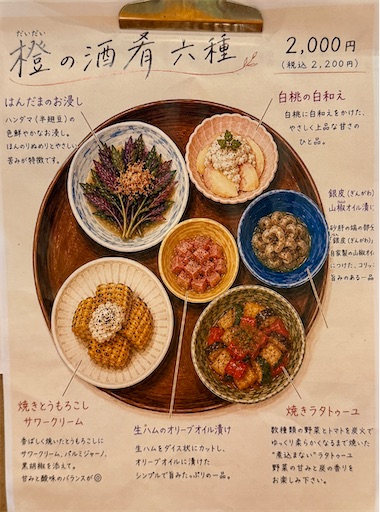 だいだい
橙の酒肴六種
2,000円
(税込 2,200円)
はんだまのお浸し
ハンダマ(水前寺菜)の
色鮮やかなお浸し。
ほんのりぬめりとやさしい
苦みが特徴です。
白桃の白和え
白桃に白和えをかけた、
やさしく上品な甘さの
ひと品。
銀皮(ぎんがわ)
山椒オイル漬け
砂肝の端の部分
「銀皮(ぎんがわ)」
自家製の山椒オイル
につけた、コリッ
旨みのある一品
焼きとうもろこし
サワークリーム
香ばしく焼いたとうもろこしに
サワークリーム、パルミジャーノ、
黒胡椒を添えて。
甘みと酸味のバランスが◎
生ハムのオリーブオイル漬け
生ハムをダイス状にカットし、
オリーブオイルに漬けた
シンプルで旨みたっぷりの一品。
焼きラタトゥーユ
数種類の野菜とトマトを炭火で
ゆっくり柔らかくなるまで焼いた
"煮込まない"ラタトゥーユ
野菜の甘みと炭の香りを
お楽しみ下さい。